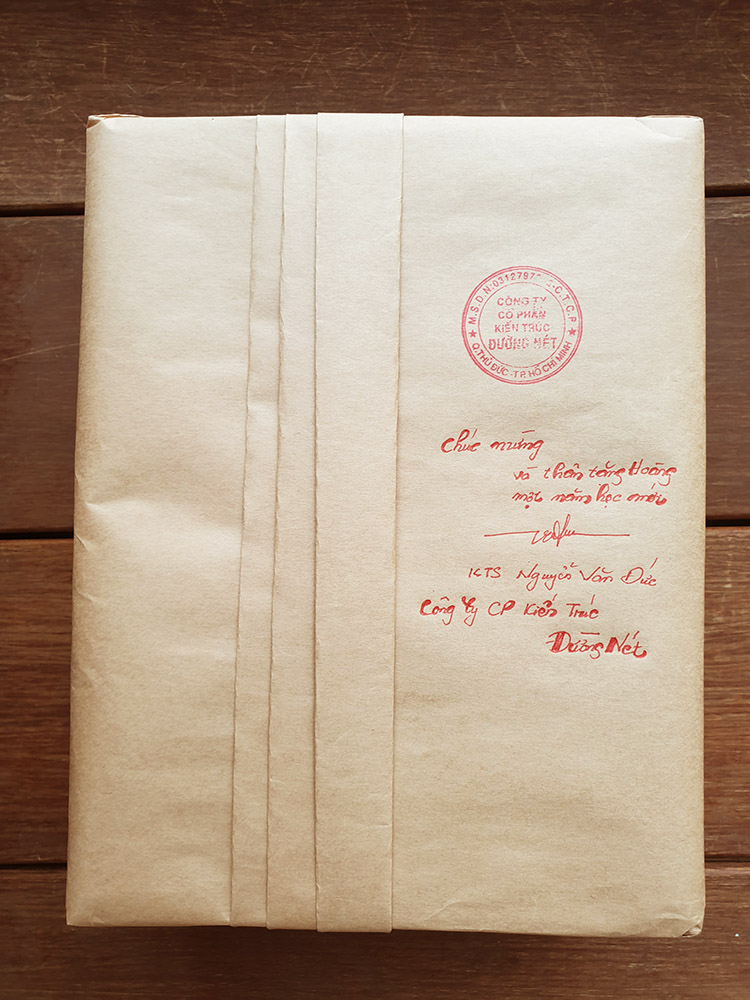 M.S.D.N:0312797 -C.T.C.P
CÔNG TY
CỔ PHẦN
KIẾN TRÚC
ĐƯỜNG NÉT
Q.THỦ ĐỨC-T.P.HỒ CHÍ MINH
Chúc mừng
và thân tặng Hoàng
một năm học mới
KTS Nguyễn Văn Đức
Công ty CP Kiến Trúc
Đường Nét